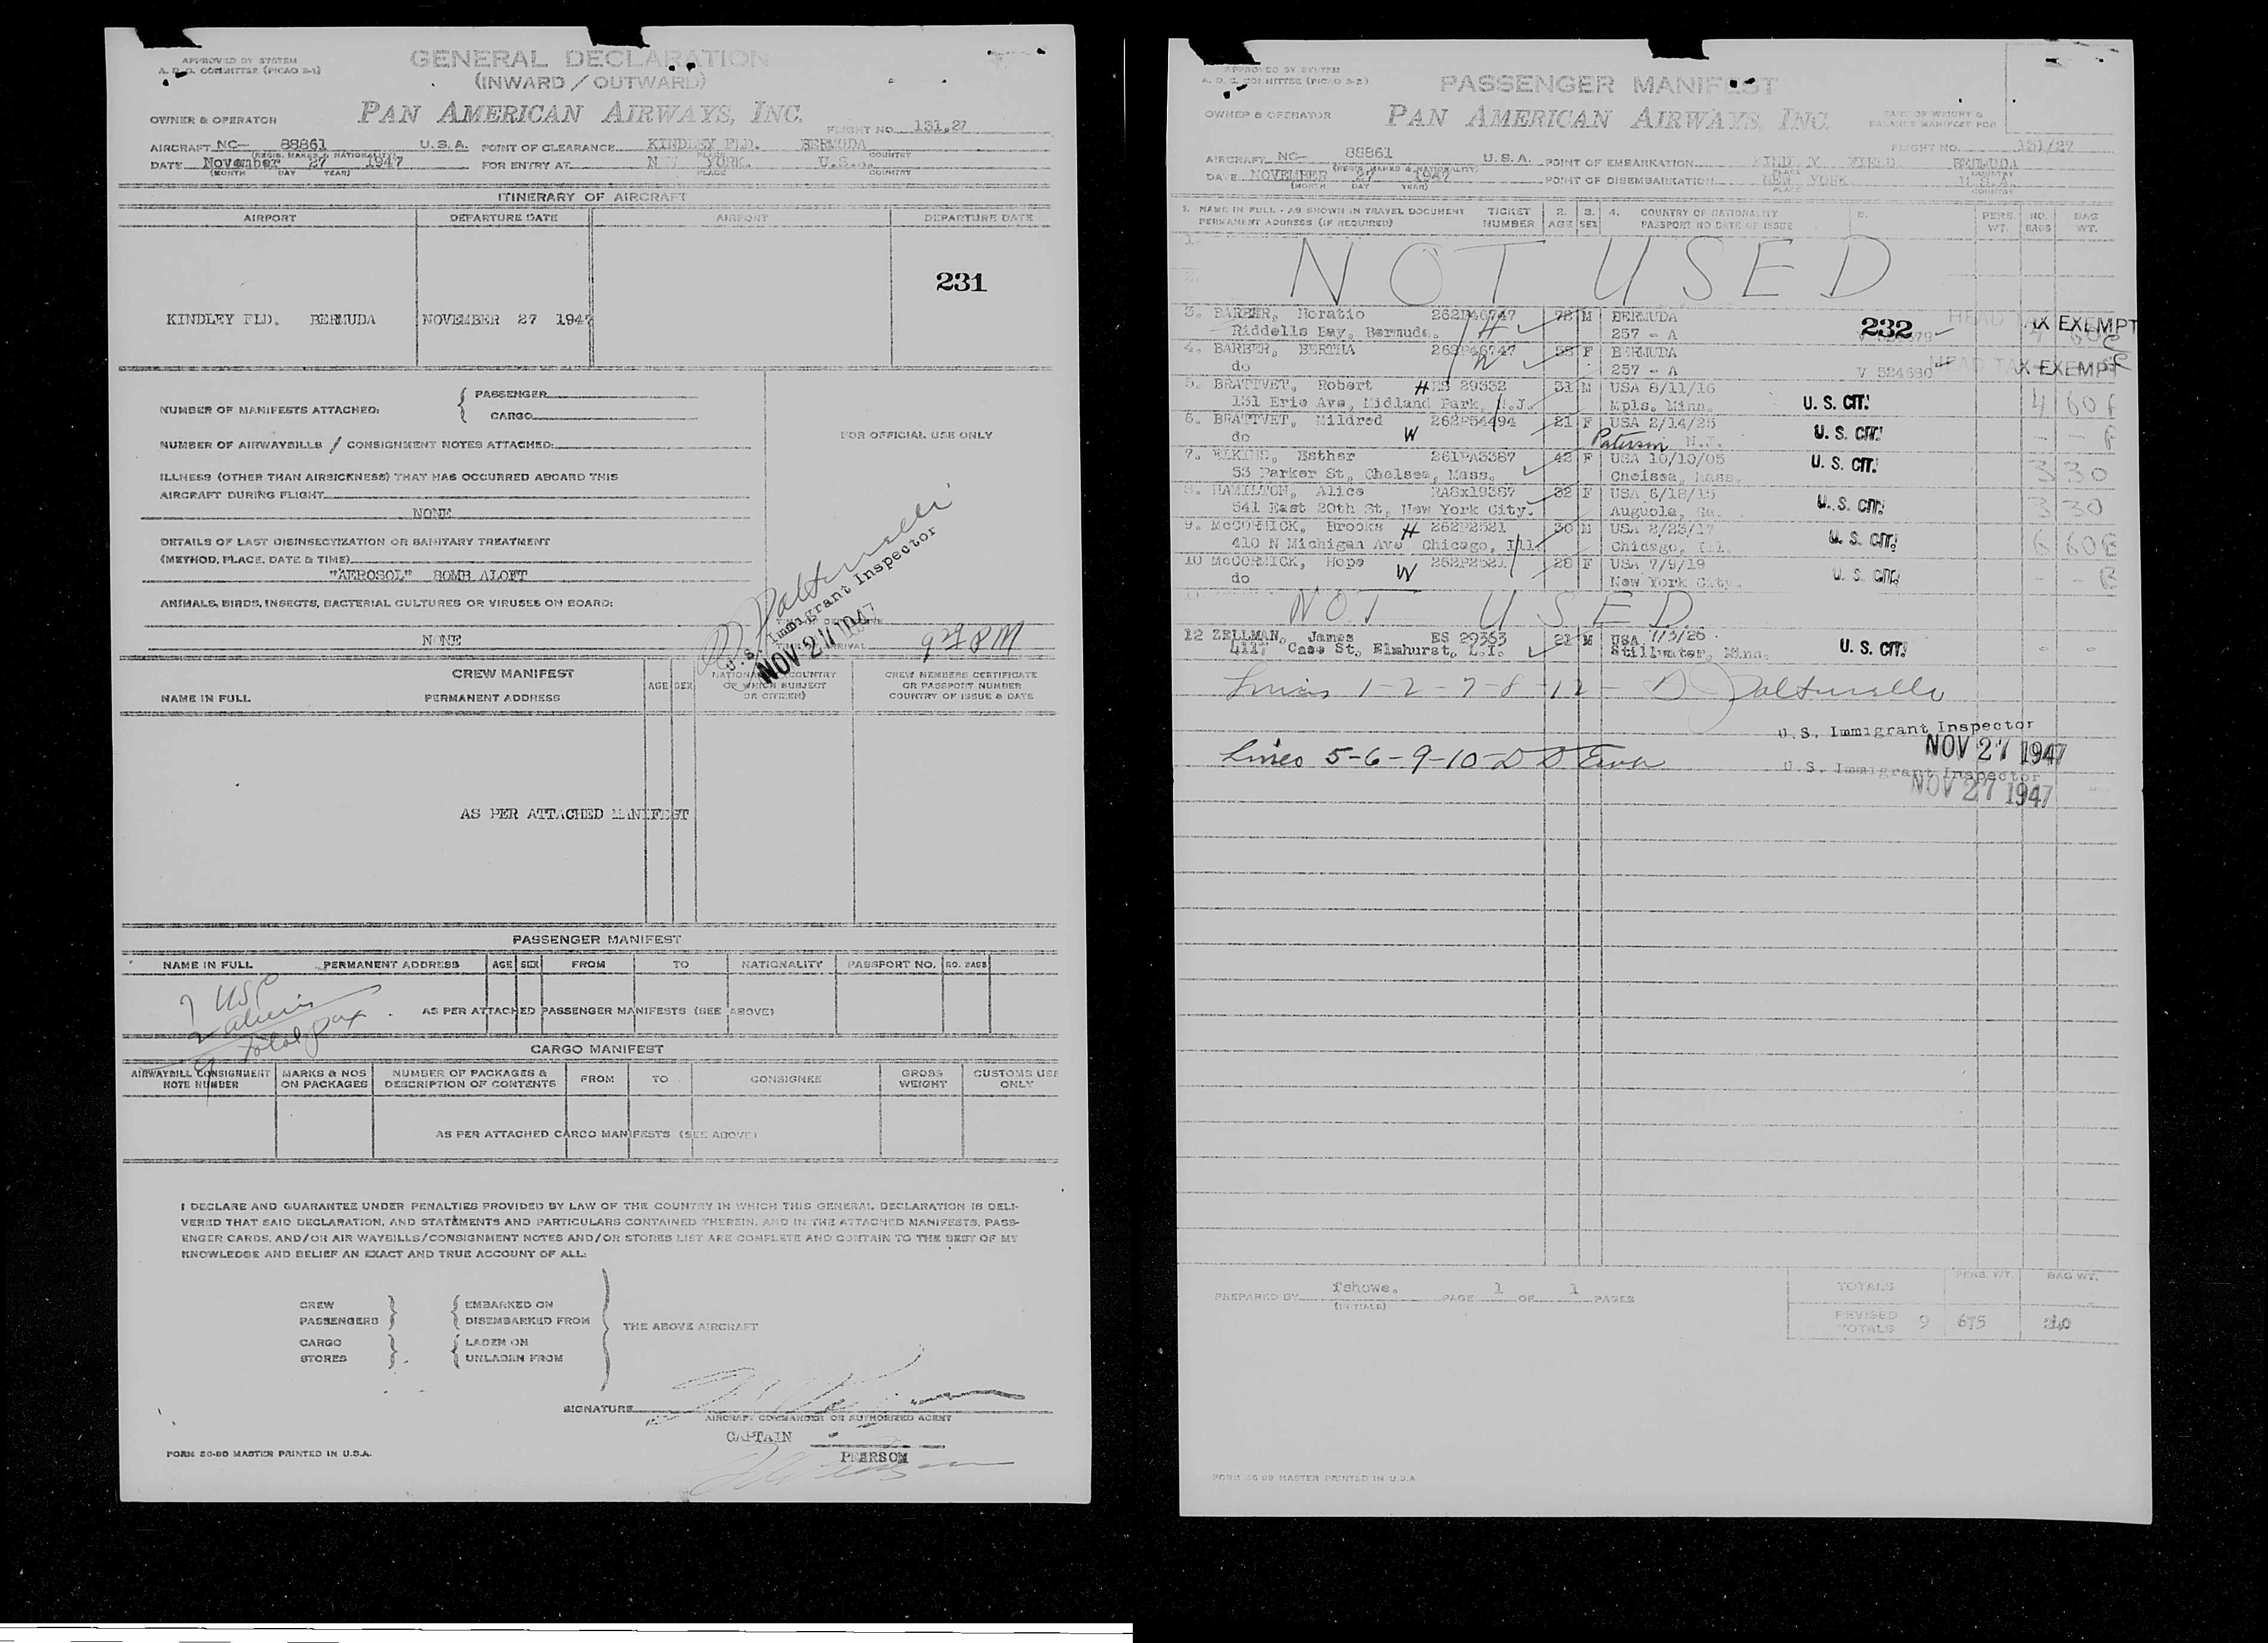 APPROVED BY SYSTEM
A. D. C. COMMITTEE (PICAO 2-1)
GENERAL DECLARATION
(INWARD / OUTWARD)
OWNER & OPERATOR
PAN AMERICAN AIRWAYS, INC.
FLIGHT NO. 131.27
AIRCRAFT NC- 88861 U.S.A. POINT OF CLEARANCE KINDLEY FLD. BERMUDA
(REGIS. MARKS & NATIONALITY) PLACE COUNTRY
DATE November 27 1947 FOR ENTRY AT YORK.
(MONTH DAY YEAR) PLACE COUNTRY
ITINERARY OF AIRCRAFT
AIRPORT DEPARTURE DATE AIRPORT DEPARTURE DATE
231
KINDLEY FLD. BERMUDA NOVEMBER 27 1947
NUMBER OF MANIFESTS ATTACHED: { PASSENGER
CARGO
NUMBER OF AIRWAYBILLS / CONSIGNMENT NOTES ATTACHED:
FOR OFFICIAL USE ONLY
ILLNESS (OTHER THAN AIRSICKNESS) THAT HAS OCCURRED ABOARD THIS
AIRCRAFT DURING FLIGHT
NONE
DETAILS OF LAST DISINSECTIZATION OR SANITARY TREATMENT
(METHOD, PLACE, DATE & TIME)
"AEROSOL" BOMB ALOFT
ANIMALS, BIRDS, INSECTS, BACTERIAL CULTURES OR VIRUSES ON BOARD:
NONE
U.S. Immigrant Inspector
NOV 27 1947
9 29 PM
CREW MANIFEST
NAME IN FULL PERMANENT ADDRESS AGE SEX
NATIONALITY (COUNTRY
OF WHICH SUBJECT
OR CITIZEN)
CREW MEMBERS CERTIFICATE
OR PASSPORT NUMBER
COUNTRY OF ISSUE & DATE
AS PER ATTACHED MANIFEST
PASSENGER MANIFEST
NAME IN FULL PERMANENT ADDRESS AGE SEX FROM TO NATIONALITY PASSPORT NO. NO. BAGS
7 USC
2 aliens
9 total pax
AS PER ATTACHED PASSENGER MANIFESTS (SEE ABOVE)
CARGO MANIFEST
AIRWAYBILL CONSIGNMENT
NOTE NUMBER
MARKS & NOS
ON PACKAGES
NUMBER OF PACKAGES &
DESCRIPTION OF CONTENTS
FROM TO CONSIGNEE
GROSS
WEIGHT
CUSTOMS USE
ONLY
AS PER ATTACHED CARGO MANIFESTS (SEE ABOVE)
I DECLARE AND GUARANTEE UNDER PENALTIES PROVIDED BY LAW OF THE COUNTRY IN WHICH THIS GENERAL DECLARATION IS DELI-
VERED THAT SAID DECLARATION, AND STATEMENTS AND PARTICULARS CONTAINED THEREIN, AND IN THE ATTACHED MANIFESTS, PASS-
ENGER CARDS, AND/OR AIR WAYBILLS/CONSIGNMENT NOTES AND/OR STORES LIST ARE COMPLETE AND CONTAIN TO THE BEST OF MY
KNOWLEDGE AND BELIEF AN EXACT AND TRUE ACCOUNT OF ALL:
CREW } { EMBARKED ON
PASSENGERS DISEMBARKED FROM
THE ABOVE AIRCRAFT
CARGO } { LADEN ON
STORES UNLADEN FROM
SIGNATURE
AIRCRAFT COMMANDER OR AUTHORIZED AGENT
CAPTAIN
PEARSON
FORM 26-90 MASTER PRINTED IN U.S.A.
APPROVED BY SYSTEM
A. D. C. COMMITTEE (PICAO 2-2)
PASSENGER MANIFEST
OWNER & OPERATOR
PAN AMERICAN AIRWAYS INC.
PART OF WEIGHT &
BALANCE MANIFEST FOR
FLIGHT NO. 131/27
AIRCRAFT NC- 88861 U.S.A. POINT OF EMBARKATION BERMUDA
(REGIS. MARKS & NATIONALITY) PLACE COUNTRY
DATE NOVEMBER 27 1947 POINT OF DISEMBARKATION NEW YORK U.S.A.
(MONTH DAY YEAR) PLACE COUNTRY
1. NAME IN FULL - AS SHOWN IN TRAVEL DOCUMENT TICKET 2. 3. 4. COUNTRY OF NATIONALITY 5. PERS. NO. BAG
PERMANENT ADDRESS (IF REQUIRED) NUMBER AGE SEX PASSPORT NO DATE OF ISSUE WT. BAGS WT.
1.
NOT USED
3. BARBER, Horatio 262P46747 72 M BERMUDA 232 HEAD TAX EXEMPT
Riddells Bay, Bermuda. H 257 - A
4. BARBER, BERTHA 262P46747 F BERMUDA
do W 257 - A V 524680 HEAD TAX EXEMPT
5. BRATTVET, Robert H ES 29332 31 M USA 8/11/16
131 Erie Ave, Midland Park, N.J. Mpls. Minn. U. S. CIT. 4 60
6. BRATTVET, Mildred 262P54494 21 F USA 2/14/25
do W Paterson N.J. U. S. CIT. - -
7. ELKINS, Esther 261PA3387 42 F USA 10/10/05
53 Parker St, Chelsea, Mass. Chelsea, Mass. U. S. CIT. 3 30
8. HAMILTON, Alice 32 F USA 6/18/15
541 East 20th St, New York City. U. S. CIT. 3 30
9. McCORMICK, Brooks H 262P2521 30 M USA 2/23/17
410 N Michigan Ave Chicago, Ill. Chicago, Ill. U. S. CIT. 6 60
10 McCORMICK, Hope 262P2521 28 F USA 7/9/19
do W New York City. U. S. CIT. - -
NOT USED
12 ZELLMAN, James ES 29363 21 M USA 7/3/26
4117 Case St, Elmhurst, L.I. Stillwater, Minn. U. S. CIT. - -
Lines 1-2-7-8-12 -
U.S. Immigrant Inspector
NOV 27 1947
Lines 5-6-9-10-
U.S. Immigrant Inspector
NOV 27 1947
PREPARED BY fshowe. PAGE 1 OF 1 PAGES
(INITIALS)
TOTALS PERS. WT. BAG WT.
REVISED
TOTALS 9 675
FORM 26-89 MASTER PRINTED IN U.S.A